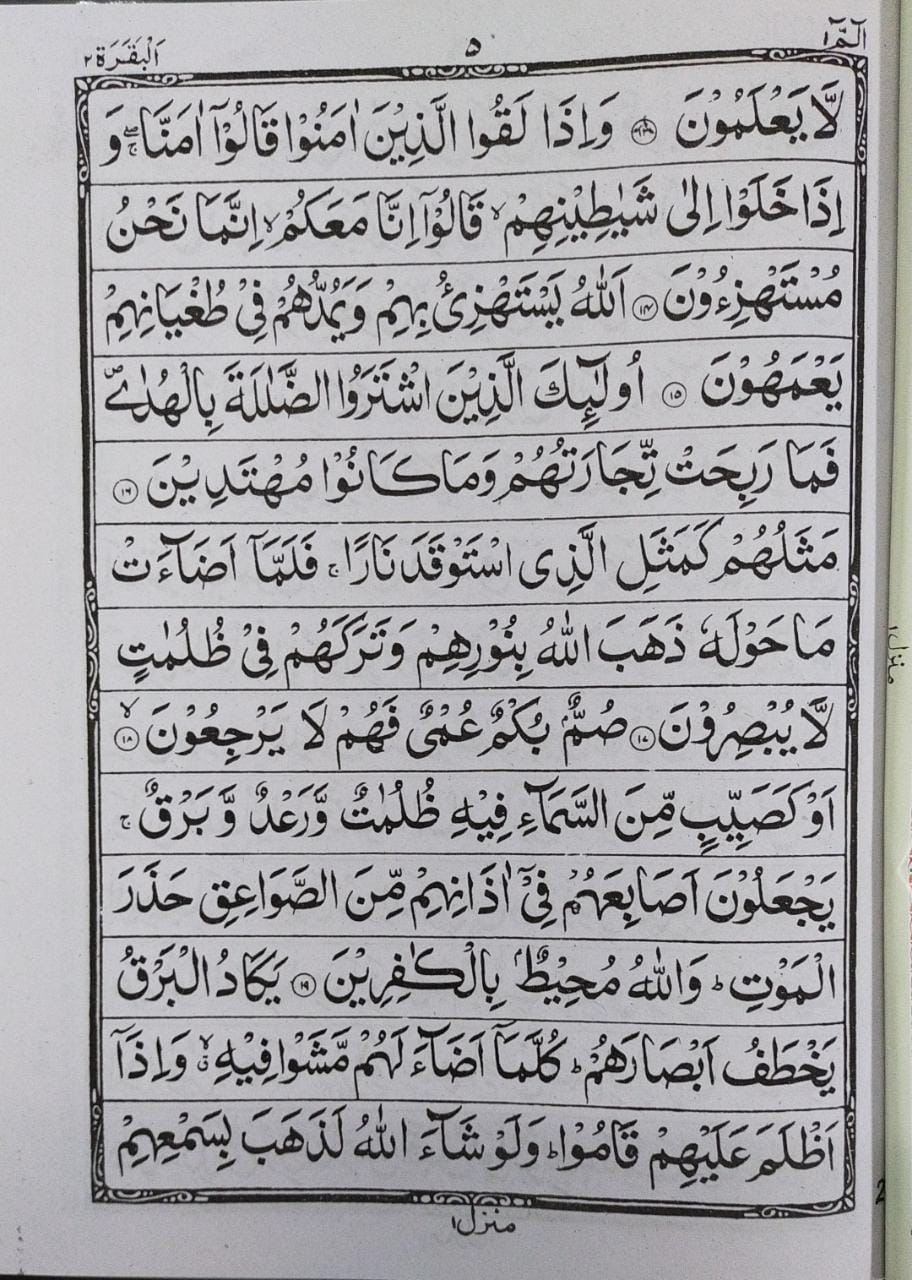 الٓمّٓ ١
٥
اَلْبَقَرَة ٢
لَّا يَعْلَمُوْنَ ﴿١٣﴾ وَاِذَا لَقُوا الَّذِيْنَ اٰمَنُوْا قَالُوْٓا اٰمَنَّا ۖۚ وَ
اِذَا خَلَوْا اِلٰى شَيٰطِيْنِهِمْ ۙ قَالُوْٓا اِنَّا مَعَكُمْ ۙ اِنَّمَا نَحْنُ
مُسْتَهْزِءُوْنَ ﴿١٤﴾ اَللّٰهُ يَسْتَهْزِئُ بِهِمْ وَيَمُدُّهُمْ فِيْ طُغْيَانِهِمْ
يَعْمَهُوْنَ ﴿١٥﴾ اُولٰٓئِكَ الَّذِيْنَ اشْتَرَوُا الضَّلٰلَةَ بِالْهُدٰى ۪
فَمَا رَبِحَتْ تِّجَارَتُهُمْ وَمَا كَانُوْا مُهْتَدِيْنَ ﴿١٦﴾
مَثَلُهُمْ كَمَثَلِ الَّذِى اسْتَوْقَدَ نَارًا ۚ فَلَمَّآ اَضَآءَتْ
مَا حَوْلَهٗ ذَهَبَ اللّٰهُ بِنُوْرِهِمْ وَتَرَكَهُمْ فِيْ ظُلُمٰتٍ
لَّا يُبْصِرُوْنَ ﴿١٧﴾ صُمٌّۢ بُكْمٌ عُمْىٌ فَهُمْ لَا يَرْجِعُوْنَ ۙ﴿١٨﴾
اَوْ كَصَيِّبٍ مِّنَ السَّمَآءِ فِيْهِ ظُلُمٰتٌ وَّرَعْدٌ وَّبَرْقٌ ۚ
يَجْعَلُوْنَ اَصَابِعَهُمْ فِيْٓ اٰذَانِهِمْ مِّنَ الصَّوَاعِقِ حَذَرَ
الْمَوْتِ ؕ وَاللّٰهُ مُحِيْطٌۢ بِالْكٰفِرِيْنَ ﴿١٩﴾ يَكَادُ الْبَرْقُ
يَخْطَفُ اَبْصَارَهُمْ ؕ كُلَّمَآ اَضَآءَ لَهُمْ مَّشَوْا فِيْهِ ۙۗ وَاِذَآ
اَظْلَمَ عَلَيْهِمْ قَامُوْا ؕ وَلَوْ شَآءَ اللّٰهُ لَذَهَبَ بِسَمْعِهِمْ
منزل ١